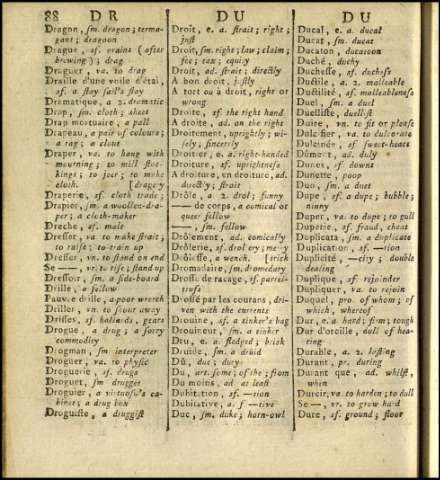 88 DR DU DU
Dragon, ſm. dragon; terma-
gant; dragoon
Drague, ſf. grains (after
brewing); drag
Draguer, va. to drag
Draille d'une voile d'étai,
ſf. a ſtay ſail's ſtay
Dramatique, a 2. dramatic
Drap, ſm. cloth; ſheet
Drap mortuaire, a pall
Drapeau, a pair of colours;
a rag; a clout
Draper, va. to hang with
mourning; to mill ſtoc-
kings; to jeer; to make
cloth. [dragery
Draperie, ſf. cloth trade;
Drapier, ſm. a woollen-dra-
per; a cloth-maker
Dreche, ſf. malt
Dreſſer, va. to make ſtrait;
to raiſe; to train up
Dreſſer, vn. to ſtand on end
Se ——, vr. to riſe; ſtand up
Dreſſoir, ſm. a ſide-board
Drille, a fellow
Pauvre drille, a poor wretch
Driller, vn. to ſcour away
Driſſes, ſf. haliards, gears
Drogue, a drug; a ſorry
commodity
Drogman, ſm interpreter
Droguer, va. to phyſic
Droguerie, ſf. drugs
Droguet, ſm drugget
Droguier, a virtuoſo's ca-
binet; a drug box
Droguiſte, a druggiſt
Droit, e. a. ſtrait; right;
juſt
Droit, ſm. right; law; claim;
fee; tax; equity
Droit, ad. ſtrait; directly
A bon droit, juſtly
A tort ou à droit, right or
wrong
Droite, ſf. the right hand
A droite, ad. on the right
Droitement, uprightly; wi-
ſely, ſincerely
Droitier, e. a. right-handed
Droiture, ſf. uprightneſs
A droiture, en droiture, ad.
directly; ſtrait
Drôle, a 2. drol; funny
—— de corps, a comical or
queer fellow
——, ſm. fellow
Drôlement, ad. comically
Drôlerie, ſf. drollery; merry
Drôleſſe, a wench. [trick
Dromadaire, ſm. dromedary
Droſſe de racage, ſf. parrel-
truſs
Droſſé par les courans, dri-
ven with the currents
Drouine, ſf. a tinker's bag
Drouineur, ſm. a tinker
Dru, e. a. fledged; brisk
Druide, ſm. a druid
Dû, due; duty
Du, art. ſome; of the; from
Du moins, ad at leaſt
Dubitation, ſf. —tion
Dubitative, a. f —tive
Duc, ſm. duke; horn-owl
Ducal, e. a. ducal
Ducat, ſm. ducat
Ducaton, ducatoon
Duché, duchy
Ducheſſe, ſf. ducheſs
Ductile, a 2. malleable
Ductilité, ſf. malleableneſs
Duel, ſm. a duel
Duelliſte, duelliſt
Duire, vn. to fit or pleaſe
Dulcifier, va. to dulcorate
Dulcinée ſf ſweet-heart
Dûment, ad. duly
Dunes, ſf. downs
Dunette, poop
Duo, ſm. a duet
Dupe, ſf. a dupe; bubble;
ninny
Duper, va. to dupe; to gull
Duperie, ſf. fraud, cheat
Duplicata, ſm. a duplicate
Duplication, ſf. —tion
Duplicité, —city; double
dealing
Duplique, ſf. rejoinder
Dupliquer, va. to rejoin
Duquel, pro. of whom; of
which, whereof
Dur, e. a. hard; firm; tough
Dur d'oreille, dull of hea-
ring
Durable, a. 2. laſting
Durant, pr. during
Durant que, ad. whilſt,
when
Durcir, va. to harden; to dull
Se ——, vr. to grow hard
Dure, ſf. ground; floor